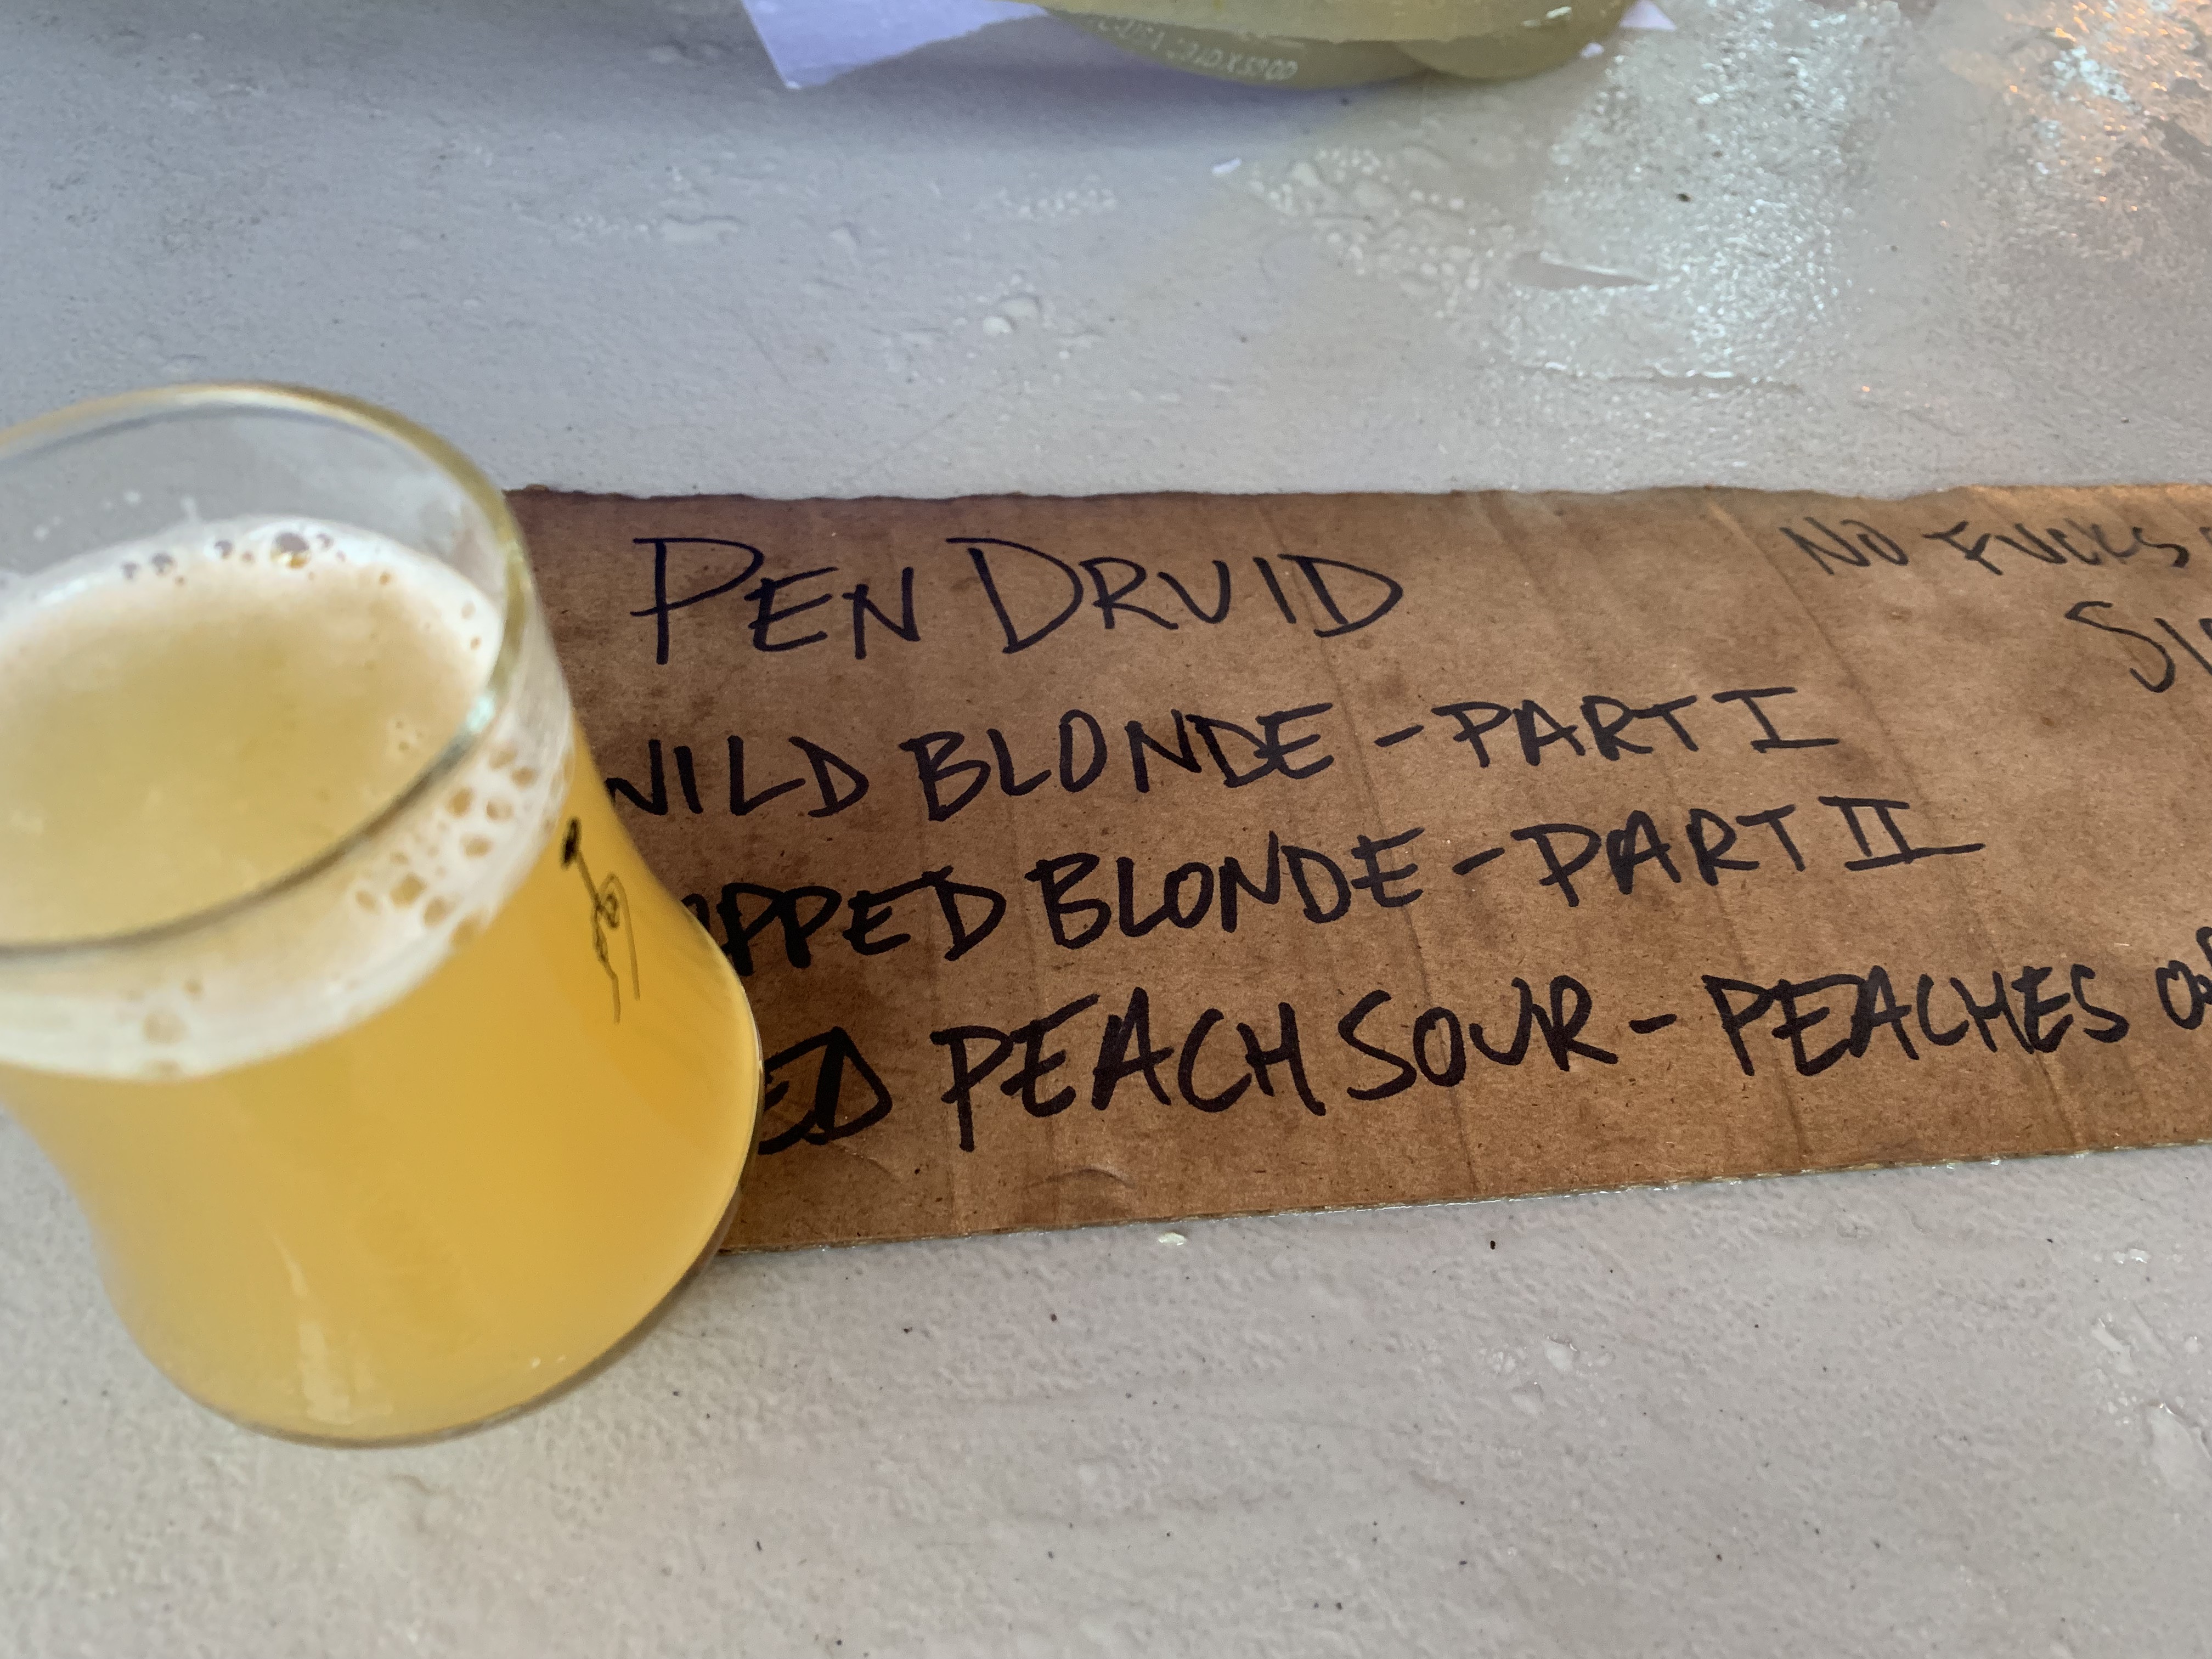 PEN DRUID
NO FUCKS
WILD BLONDE - PART I
BLONDE - PART II
PEACH SOUR - PEACHES